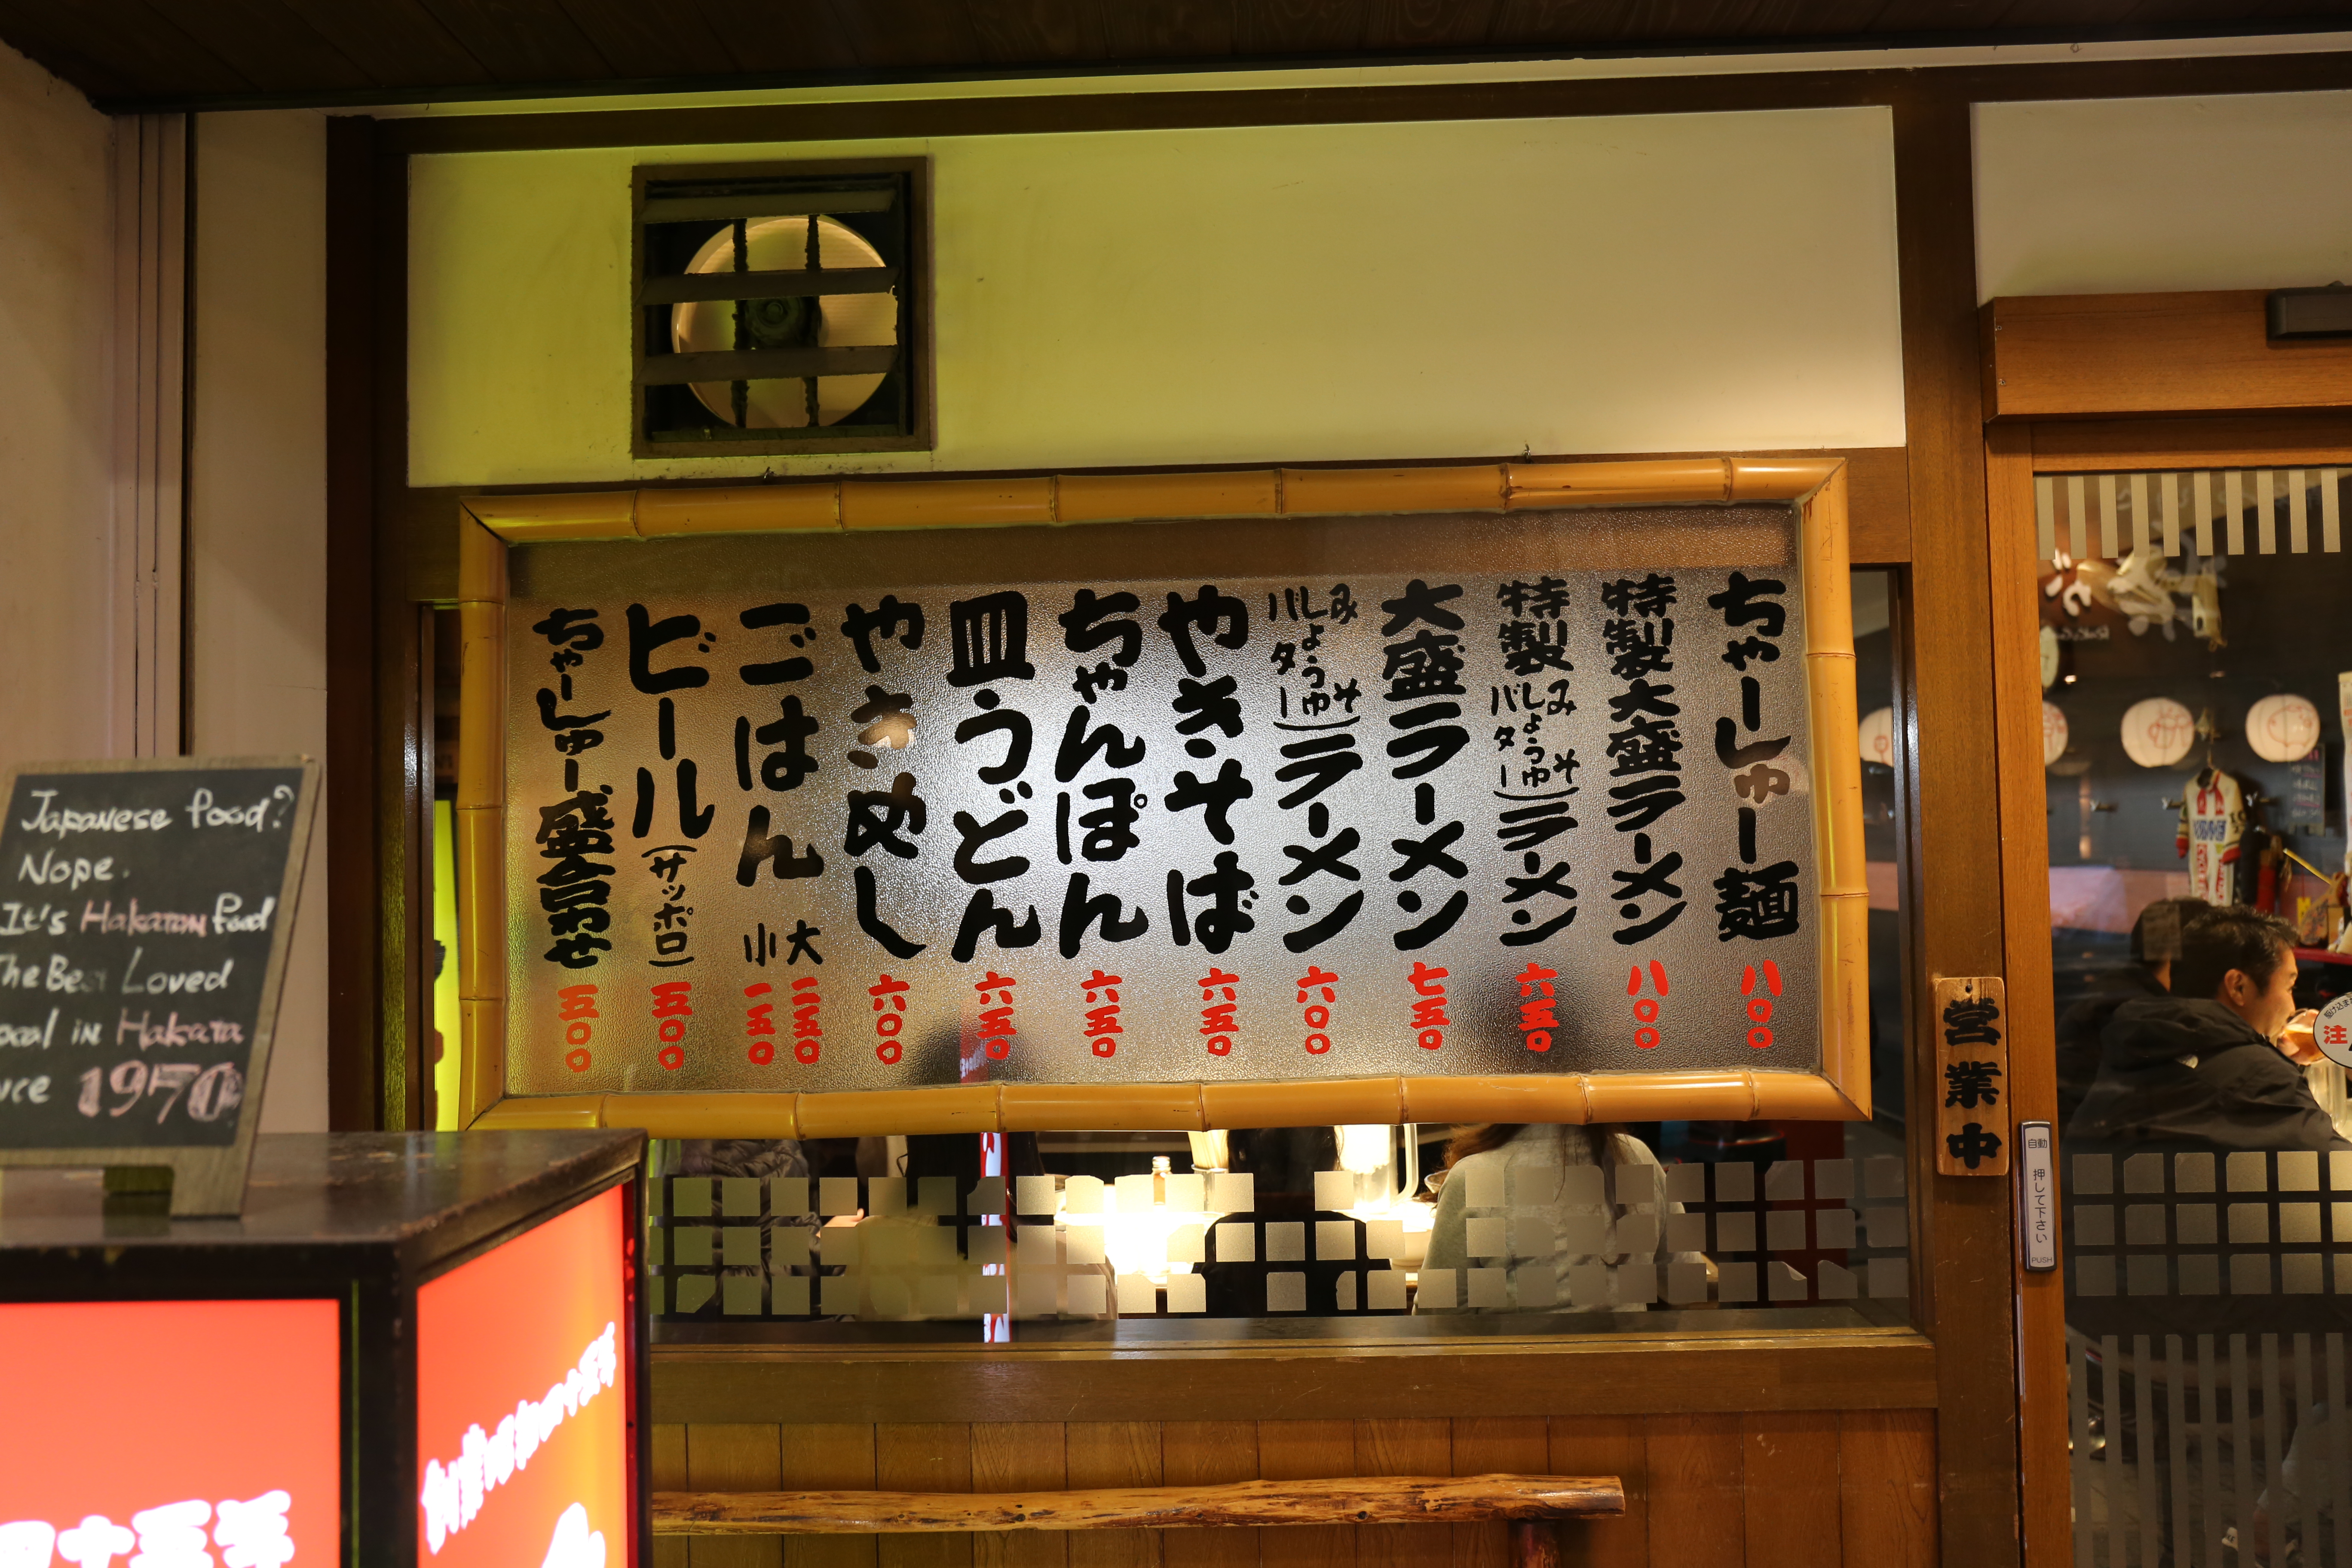 ちゃーしゅー麺 八〇〇
特製大盛ラーメン 八〇〇
特製(みそ しょうゆ バター)ラーメン 六五〇
大盛ラーメン 七五〇
(みそ しょうゆ バター)ラーメン 六〇〇
やきそば 六五〇
ちゃんぽん 六五〇
皿うどん 六五〇
やきめし 六〇〇
ごはん 大 二五〇
小 一五〇
ビール(サッポロ) 五〇〇
ちゃーしゅー盛合わせ 五〇〇
営業中
自動
押して下さい
PUSH
注
Japanese food?
Nope.
It's Hakatan food
The Best Loved
ocal in Hakata
nce 1970